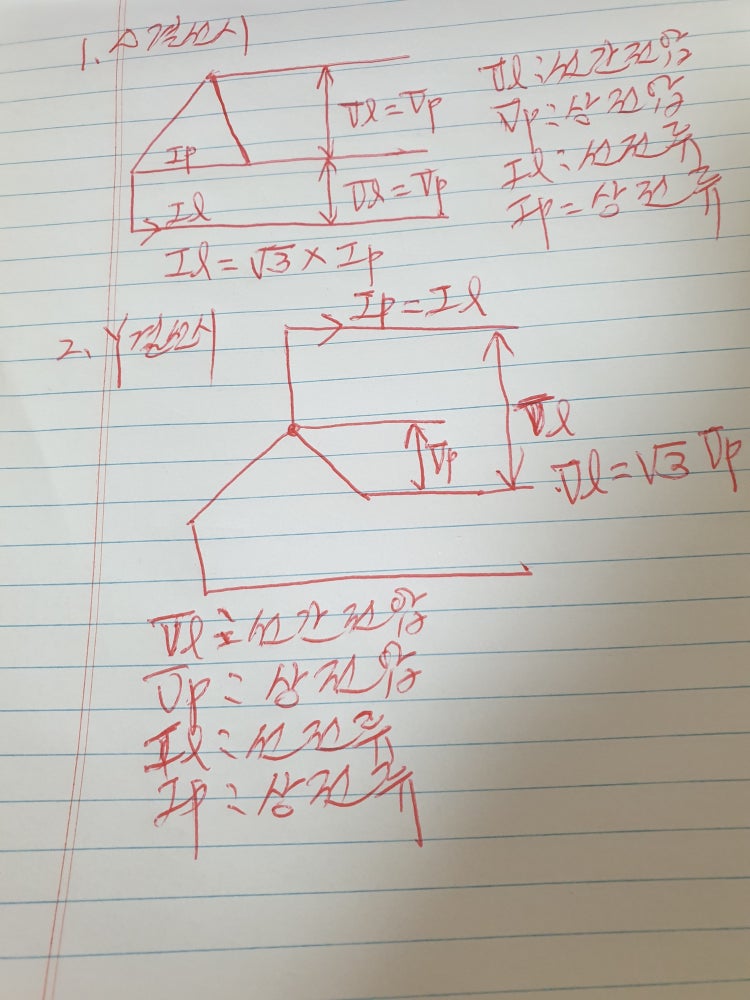 1. △결선시
Vl = Vp
Vl = Vp
Ip
Il
Il = √3 × Ip
Vl : 선간전압
Vp : 상전압
Il : 선전류
Ip = 상전류
2. Y결선시
Ip = Il
Vl
Vp
Vl = √3 Vp
Vl : 선간전압
Vp : 상전압
Il : 선전류
Ip : 상전류